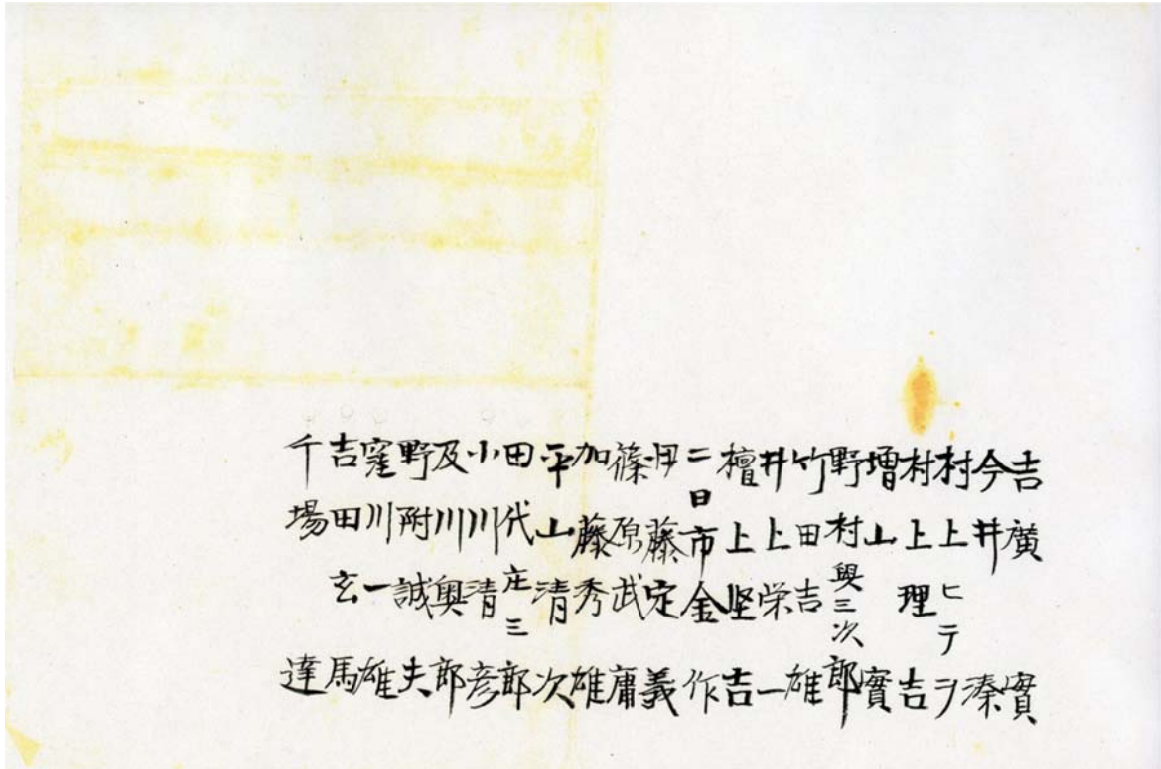 吉廣實
今井溱
村上ヒテヲ
村上理吉
増山實
野村與三次郎
竹田吉雄
井上栄一
檀上坚吉
二日市金作
伊藤定義
篠原武庸
加藤秀雄
平山清次
田代庄三郎
小川清彦
及川奥郎
野附誠夫
窪川一雄
吉田玄馬
千場達